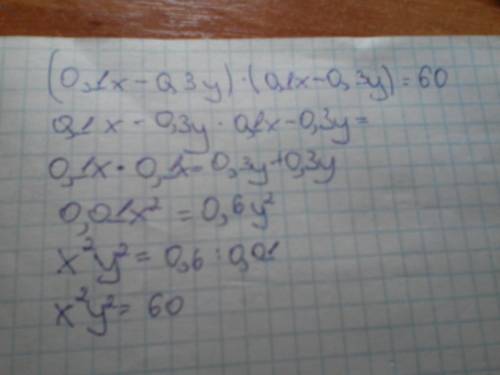 (0,1x - 0,3y) · (0,1x - 0,3y) = 60
0,1x - 0,3y · 0,1x - 0,3y =
0,1x · 0,1x = 0,3y + 0,3y
0,01x² = 0,6y²
x²y² = 0,6 : 0,01
x²y² = 60